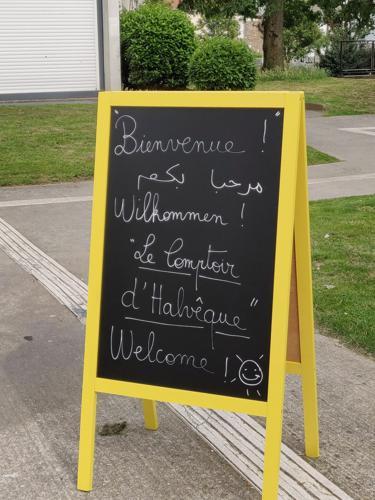 "Bienvenue !"
مرحبا بكم
Wilkommen !
"Le Comptoir
d'Halvêque"
Welcome !